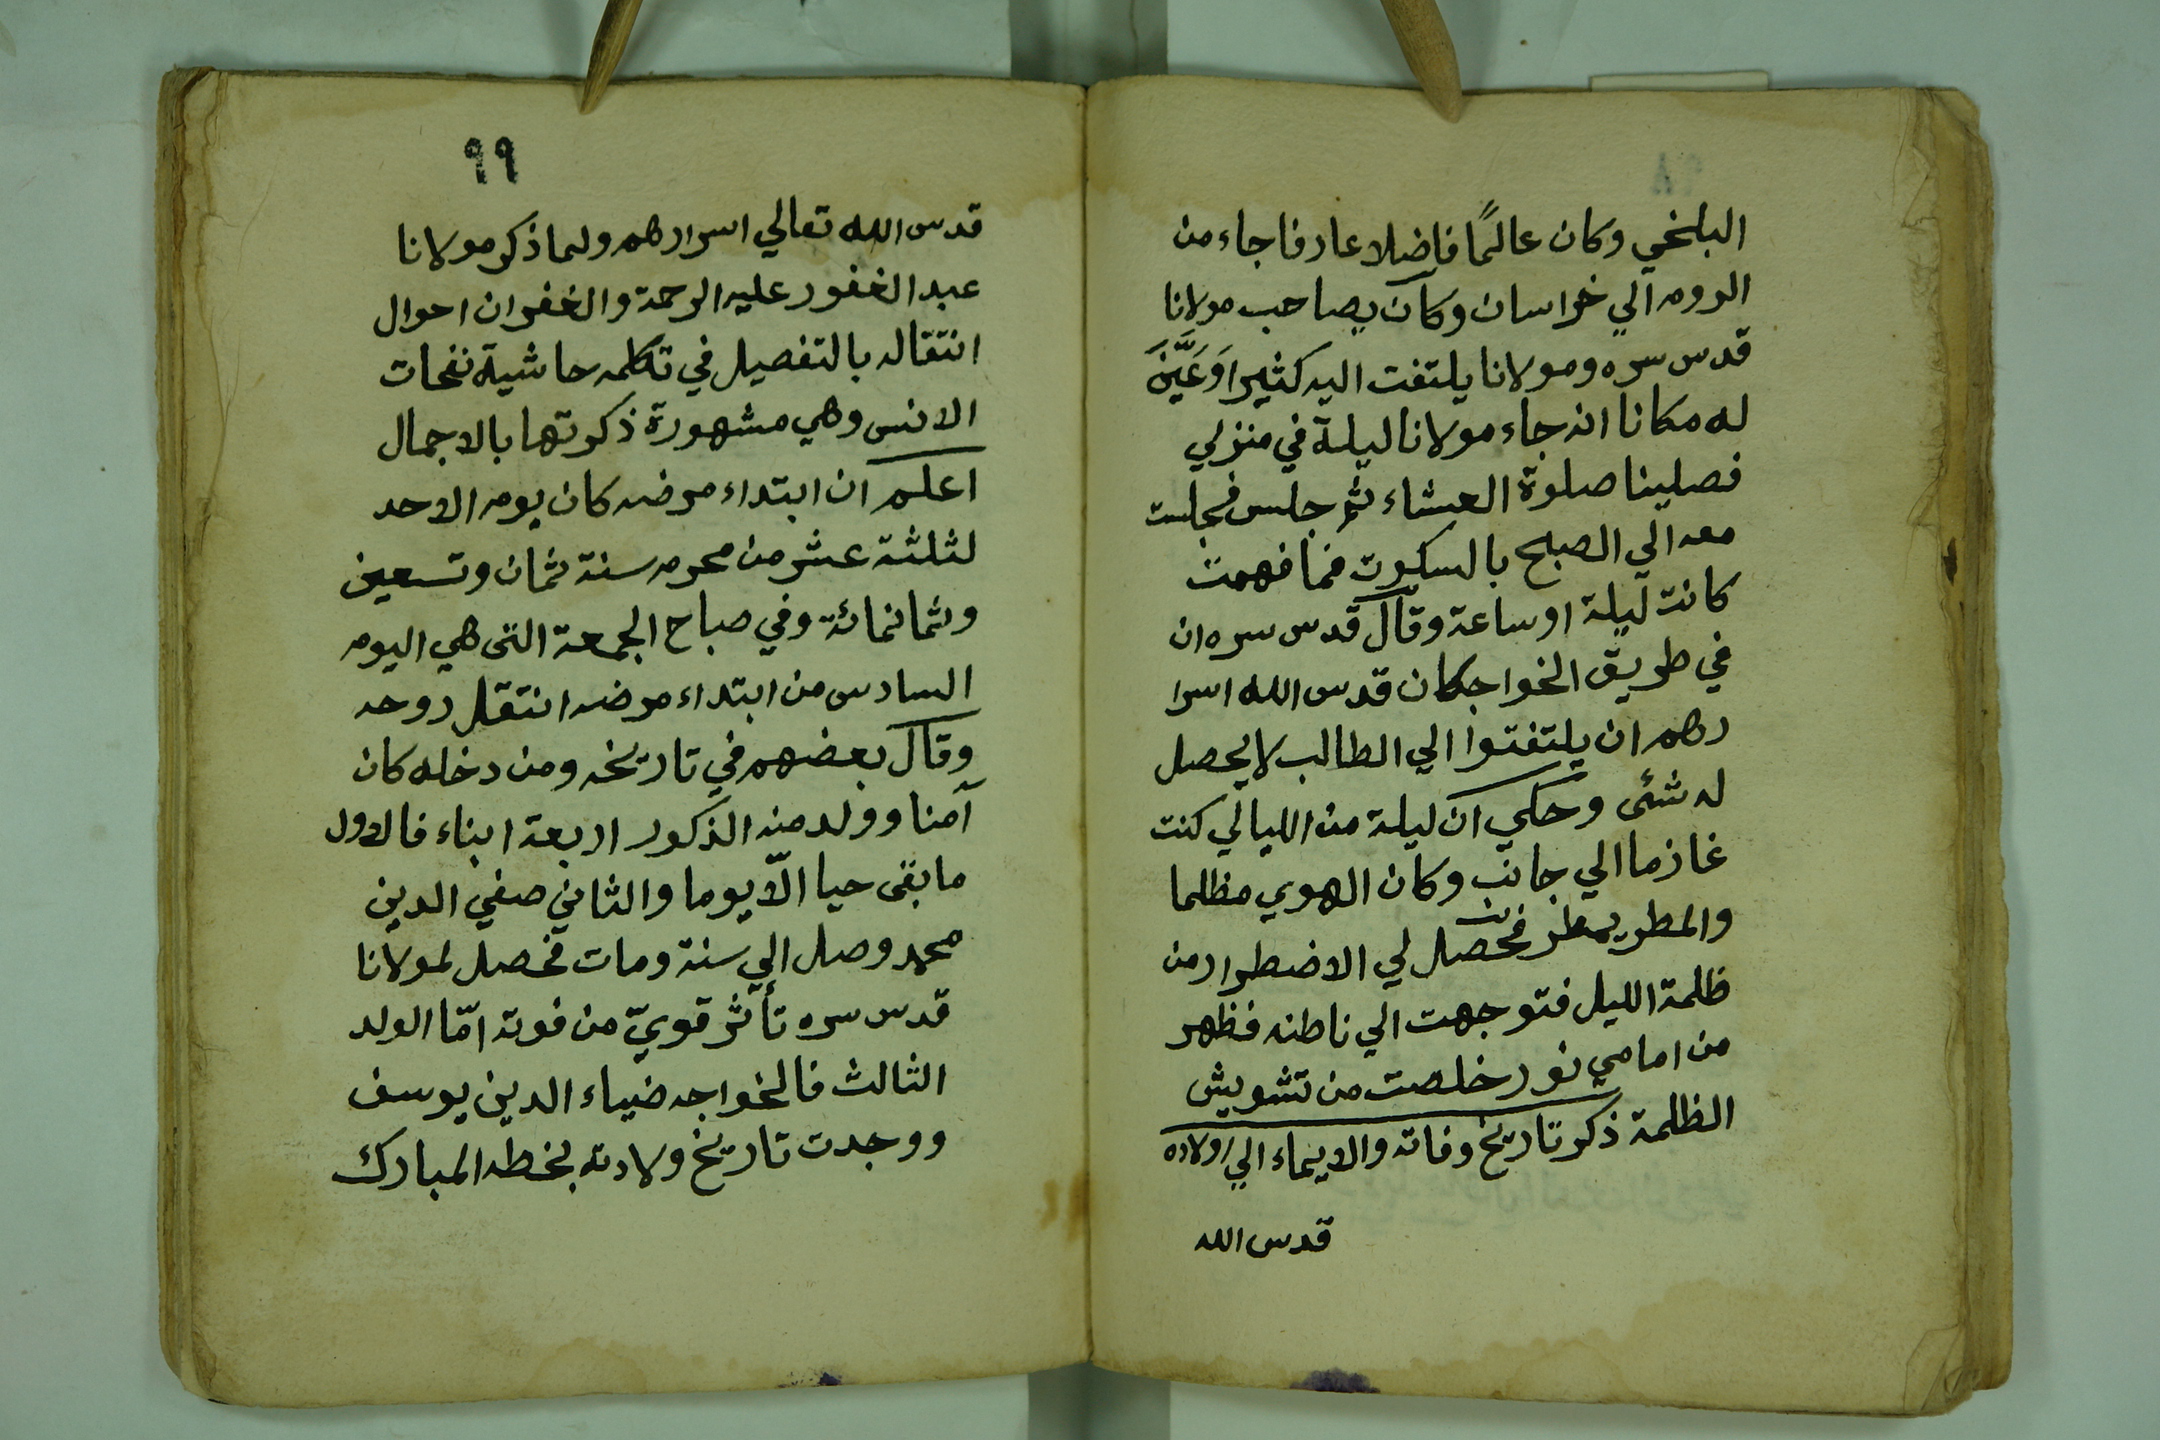 البلخي وكان عالمًا فاضلا عارفا جاء من
الروم الي خراسان وكان يصاحب مولانا
قدس سره ومولانا يلتفت اليه كثيرا وَعَيَّنَ
له مكانا انه جاء مولانا ليلة في منزلي
فصلينا صلوة العشاء ثم جلس فجلست
معه الي الصبح بالسكوت فما فهمت
كانت ليلة او ساعة وقال قدس سره ان
في طريق الخواجكان قدس الله اسرا
رهم ان يلتفتوا الي الطالب لا يحصل
له شئى وحكي ان ليلة من الليالي كنت
غازما الي جانب وكان الهوي مظلما
والمطر يمطر فحصل لي الاضطرار من
ظلمة الليل فتوجهت الي ناطنه فظهر
من امامي نور خلصت من تشويش
الظلمة ذكر تاريخ وفاته والايماء الي اولاده
قدس الله
٩٩
قدس الله تعالي اسرارهم ولما ذكر مولانا
عبد الغفور عليه الرحمة والغفران احوال
انتقاله بالتفصيل في تكلمه حاشية نفحات
الانس وهي مشهورة ذكرتها بالاجمال
اعلم ان ابتداء مرضه كان يوم الاحد
لثلثة عشر من محرم سنة ثمان وتسعين
وثمانمائة وفي صباح الجمعة التى هي اليوم
السادس من ابتداء مرضه انتقل روحه
وقال بعضهم في تاريخه ومن دخله كان
آمنا وولد منه الذكور اربعة ابناء فالاول
ما بقى حيا الّا يوما والثاني صفي الدين
محمد وصل الي سنة ومات فحصل لمولانا
قدس سره تأثر قويّ من فوته امّا الولد
الثالث فالخواجه ضياء الدين يوسف
ووجدت تاريخ ولادته بخطه المبارك